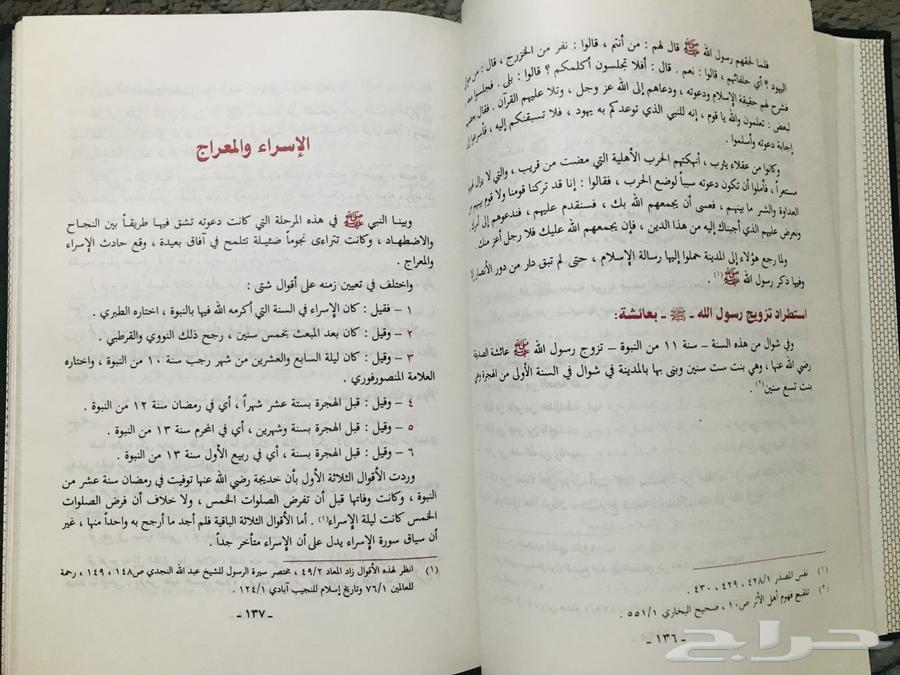 فلما لحقهم رسول الله ﷺ قال لهم : من أنتم ، قالوا : نفر من الخزرج ، قال : من موالي
اليهود ؟ أي حلفائهم ، قالوا : نعم . قال : أفلا تجلسون أكلمكم ؟ قالوا : بلى . فجلسوا معه
فشرح لهم حقيقة الإسلام ودعوته ، ودعاهم إلى الله عز وجل ، وتلا عليهم القرآن . فقال بعضهم
لبعض : تعلمون والله يا قوم ، إنه للنبي الذي توعدكم به يهود ، فلا تسبقنكم إليه ، فأسرعوا إلى
إجابة دعوته وأسلموا .
وكانوا من عقلاء يثرب ، أنهكتهم الحرب الأهلية التي مضت من قريب ، والتي لا يزال لهيبها
مستعراً ، فأملوا أن تكون دعوته سبباً لوضع الحرب ، فقالوا : إنا قد تركنا قومنا ولا قوم بينهم من
العداوة والشر ما بينهم ، فعسى أن يجمعهم الله بك ، فسنقدم عليهم ، فندعوهم إلى أمرك
ونعرض عليهم الذي أجبناك إليه من هذا الدين ، فإن يجمعهم الله عليك فلا رجل أعز منك
ولما رجع هؤلاء إلى المدينة حملوا إليها رسالة الإسلام ، حتى لم تبق دار من دور الأنصار إلا
وفيها ذكر رسول الله ﷺ (١) .
استطراد تزويج رسول الله - ﷺ - بعائشة:
وفي شوال من هذه السنة – سنة ١١ من النبوة – تزوج رسول الله ﷺ عائشة الصديقة
رضي الله عنها ، وهي بنت ست سنين وبنى بها بالمدينة في شوال في السنة الأولى من الهجرة وهي
بنت تسع سنين (٢) .
(١) نفس المصدر ٤٢٨/١ ، ٤٢٩ ، ٤٣٠ .
(٢) تلقيح فهوم أهل الأثر ص١٠ ، صحيح البخاري ٥٥١/١ .
- ١٣٦ -
الإسراء والمعراج
وبينا النبي ﷺ في هذه المرحلة التي كانت دعوته تشق فيها طريقاً بين النجاح
والاضطهاد ، وكانت تتراءى نجوماً ضئيلة تتلمح في آفاق بعيدة ، وقع حادث الإسراء
والمعراج .
واختلف في تعيين زمنه على أقوال شتى :
١ – فقيل : كان الإسراء في السنة التي أكرمه الله فيها بالنبوة ، اختاره الطبري .
٢ – وقيل : كان بعد المبعث بخمس سنين ، رجح ذلك النووي والقرطبي .
٣ – وقيل : كان ليلة السابع والعشرين من شهر رجب سنة ١٠ من النبوة ، واختاره
العلامة المنصورفوري .
٤ – وقيل : قبل الهجرة بستة عشر شهراً ، أي في رمضان سنة ١٢ من النبوة .
٥ – وقيل : قبل الهجرة بسنة وشهرين ، أي في المحرم سنة ١٣ من النبوة .
٦ – وقيل : قبل الهجرة بسنة ، أي في ربيع الأول سنة ١٣ من النبوة .
وردت الأقوال الثلاثة الأول بأن خديجة رضي الله عنها توفيت في رمضان سنة عشر من
النبوة ، وكانت وفاتها قبل أن تفرض الصلوات الخمس ، ولا خلاف أن فرض الصلوات
الخمس كانت ليلة الإسراء (١) . أما الأقوال الثلاثة الباقية فلم أجد ما أرجح به واحداً منها ، غير
أن سياق سورة الإسراء يدل على أن الإسراء متأخر جداً .
(١) انظر لهذه الأقوال زاد المعاد ٤٩/٢ ، مختصر سيرة الرسول للشيخ عبد الله النجدي ص١٤٨ ، ١٤٩ ، رحمة
للعالمين ٧٦/١ وتاريخ إسلام للنجيب آبادي ١٢٤/١ .
- ١٣٧ -
حراج